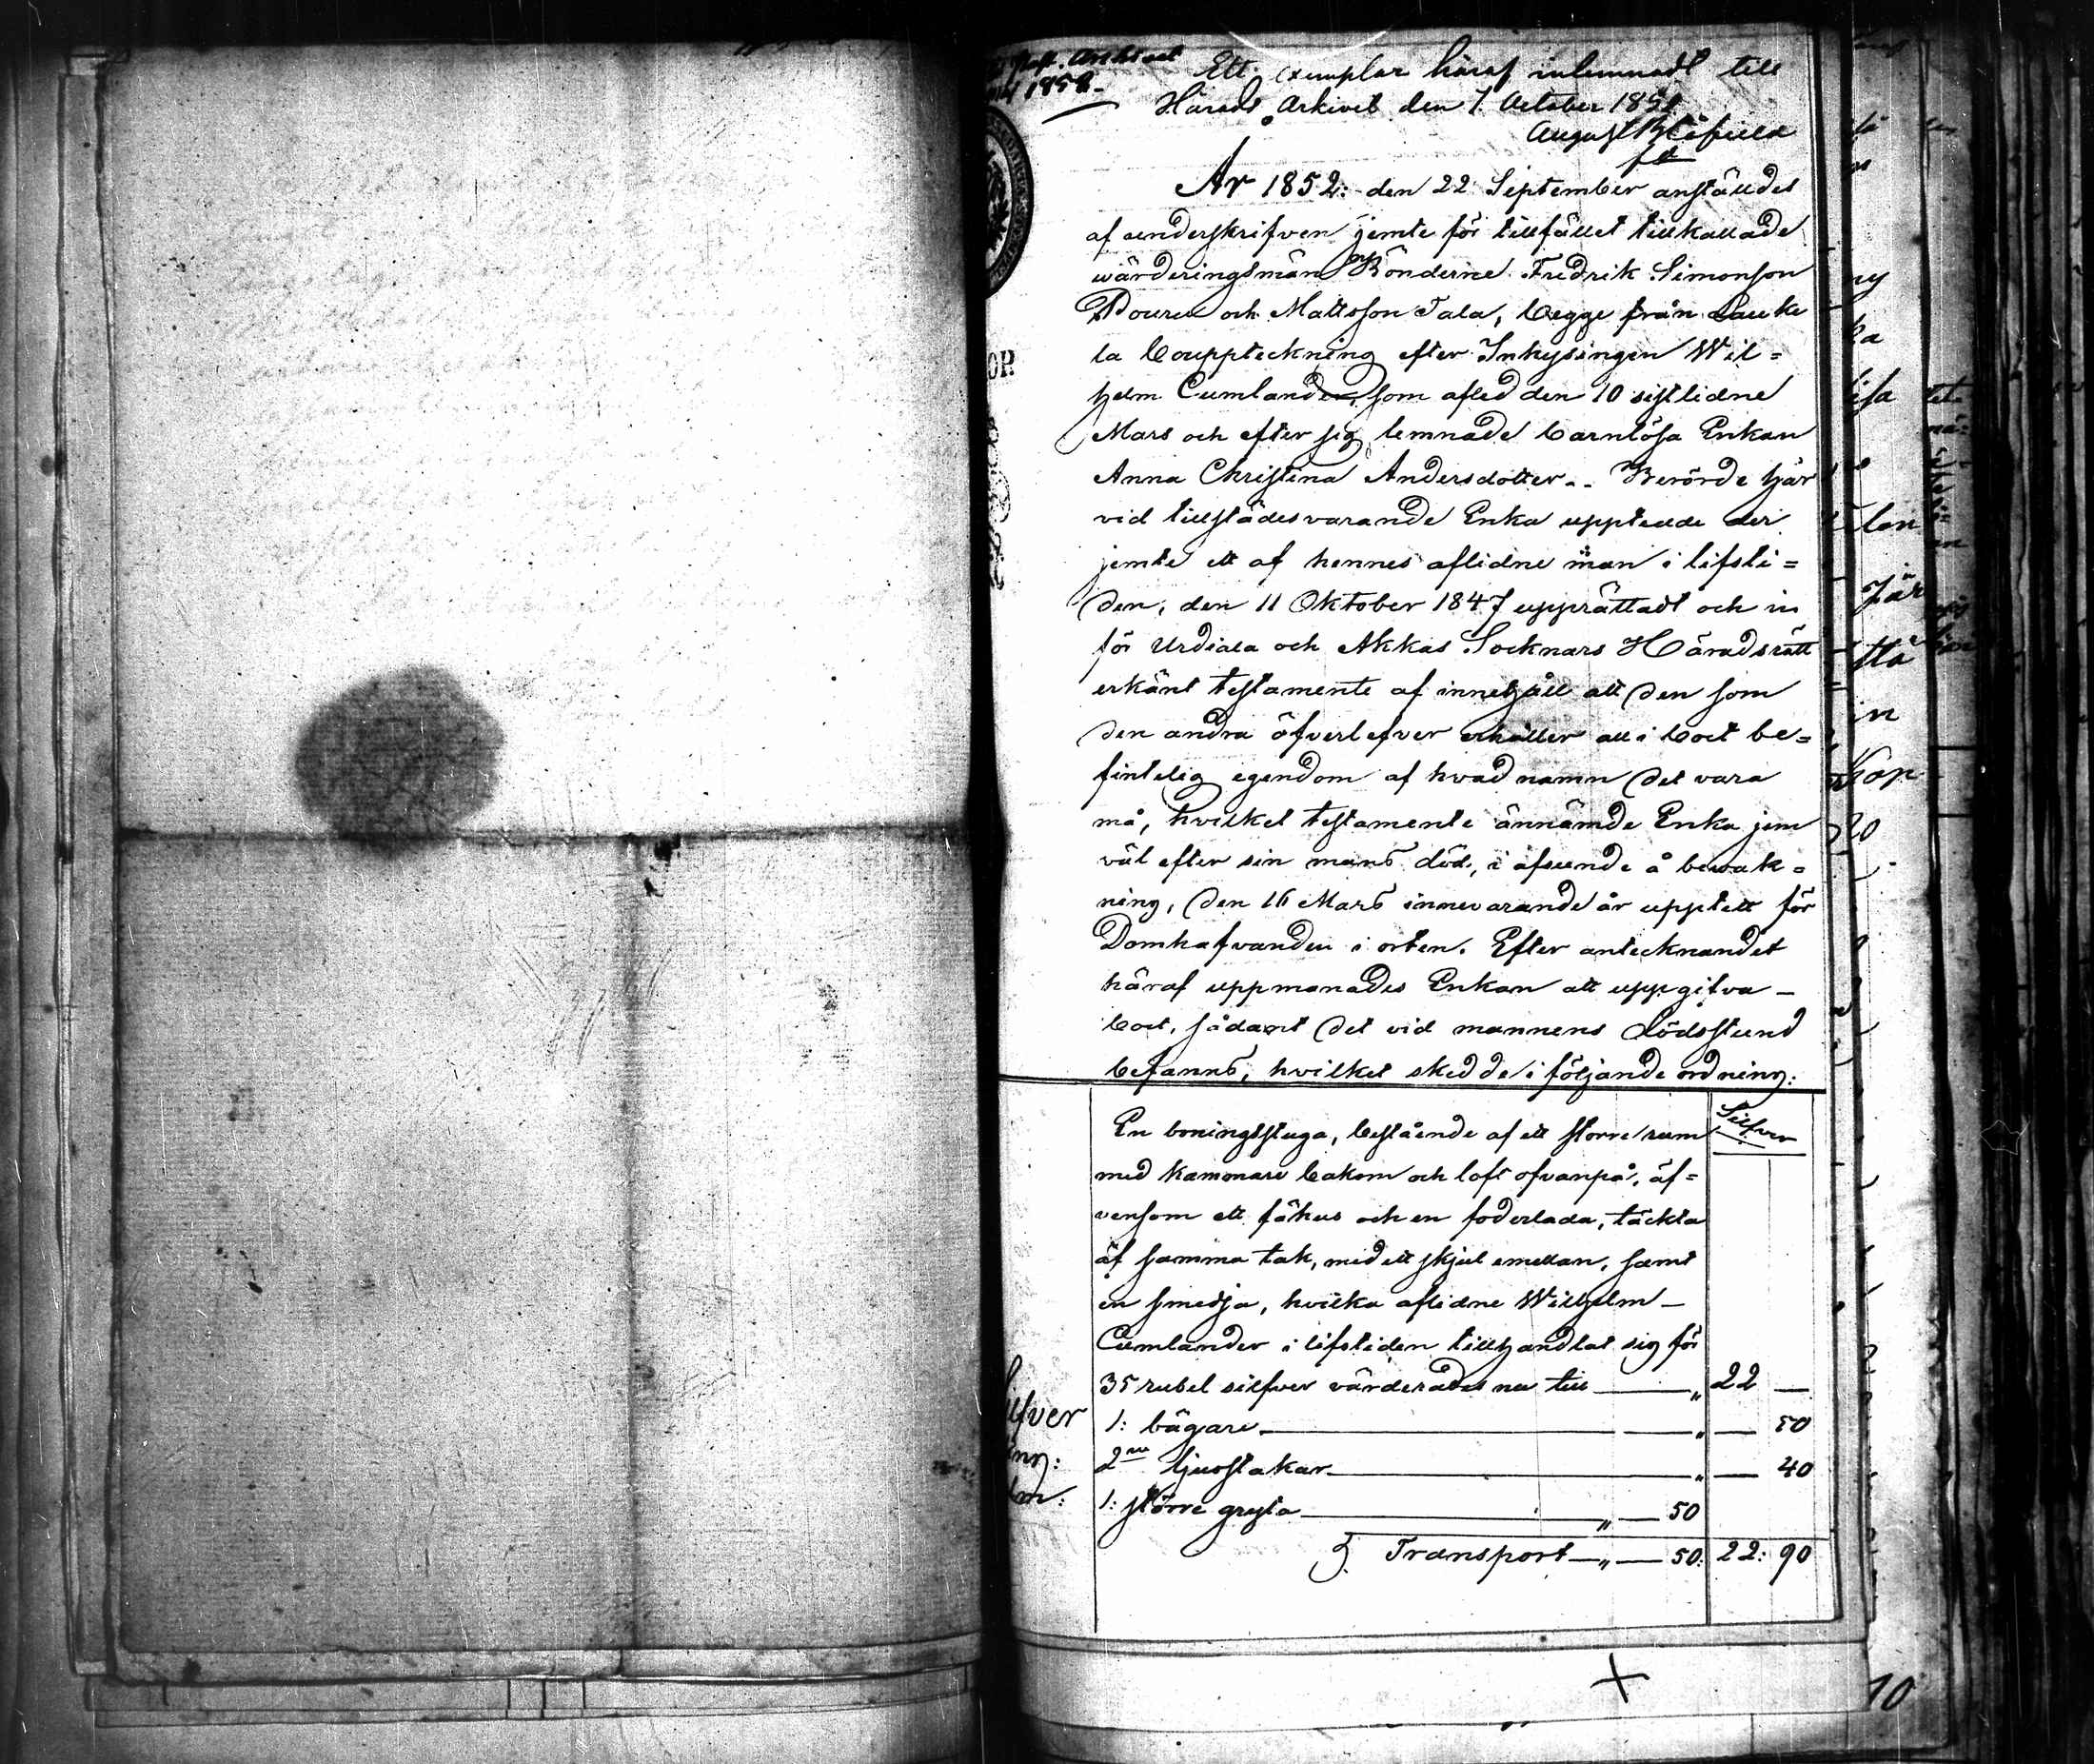 Ett exemplar häraf inlemnadt till
Härads Arkivet den 7 October 1852
August
År 1852: den 22 September anstäldes
af underskrifven jemte för tillfället tillkallade
wärderingsmän Bönderne Fredrik Simonsson
och Mattsson Tala, begge från Lauke
la bouppteckning efter Inhysingen Wil=
helm Cumlander, som afled den 10 sistlidne
Mars och efter sig lemnade barnlösa Enkan
Anna Christina Andersdotter.. Berörde här
vid tillstädesvarande Enka uppteedde der
jemte ett af hennes aflidne man i lifsti=
den, den 11 Oktober 1847 upprättadt och in
för Urdiala och Akkas Socknars Häradsrätt
erkänt testamente af innehåll att den som
den andra öfverlefver erhåller all i boet be=
fintelig egendom af hvad namn det vara
må, hvilket testamente ännämde Enka jem
väl efter sin mans död, i afseende å bewak=
ning, den 16 Mars innevarande år upptett för
Domhafvanden i orten. Efter antecknandet
häraf uppmanades Enkan att uppgifva
boet, sådant det vid mannens dödsstund
befanns, hvilket skedde i följande ordning:
Silfver
En boningsstuga, bestående af ett storre rum
med kammare bakom och loft ofvanpå, äf=
vensom ett fähus och en foderlada, täckta
af samma tak, med ett skjul emellan, samt
en smedja, hvilka aflidne Wilhelm
Cumlander i lifstiden tillhandlat sig för
35 rubel silfver värderades nu till — „ 22 —
1: bägare — „ — 50
2ne ljusstakar — „ — 40
1: större gryta — „ — 50
Transport — „ — 50: 22: 90
10